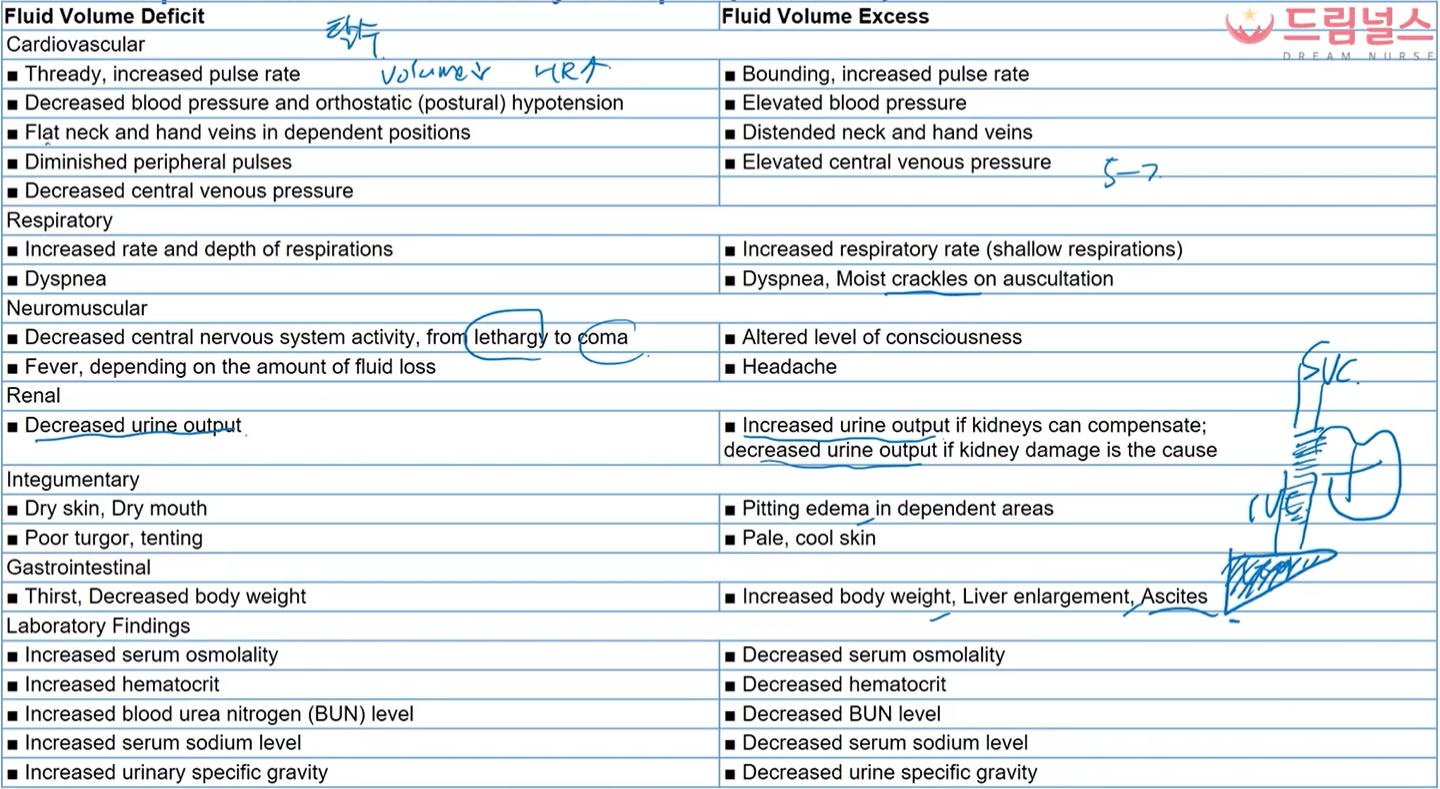 Fluid Volume Deficit
Fluid Volume Excess
드림널스
DREAM NURSE
탈수
Cardiovascular
volume↓ HR↑
■ Thready, increased pulse rate
■ Bounding, increased pulse rate
■ Decreased blood pressure and orthostatic (postural) hypotension
■ Elevated blood pressure
■ Flat neck and hand veins in dependent positions
■ Distended neck and hand veins
■ Diminished peripheral pulses
■ Elevated central venous pressure
5-7
■ Decreased central venous pressure
Respiratory
■ Increased rate and depth of respirations
■ Increased respiratory rate (shallow respirations)
■ Dyspnea
■ Dyspnea, Moist crackles on auscultation
Neuromuscular
■ Decreased central nervous system activity, from lethargy to coma
■ Altered level of consciousness
■ Fever, depending on the amount of fluid loss
■ Headache
SVC
Renal
■ Decreased urine output
■ Increased urine output if kidneys can compensate;
decreased urine output if kidney damage is the cause
Integumentary
IVC
■ Dry skin, Dry mouth
■ Pitting edema in dependent areas
■ Poor turgor, tenting
■ Pale, cool skin
Gastrointestinal
■ Thirst, Decreased body weight
■ Increased body weight, Liver enlargement, Ascites
Laboratory Findings
■ Increased serum osmolality
■ Decreased serum osmolality
■ Increased hematocrit
■ Decreased hematocrit
■ Increased blood urea nitrogen (BUN) level
■ Decreased BUN level
■ Increased serum sodium level
■ Decreased serum sodium level
■ Increased urinary specific gravity
■ Decreased urine specific gravity